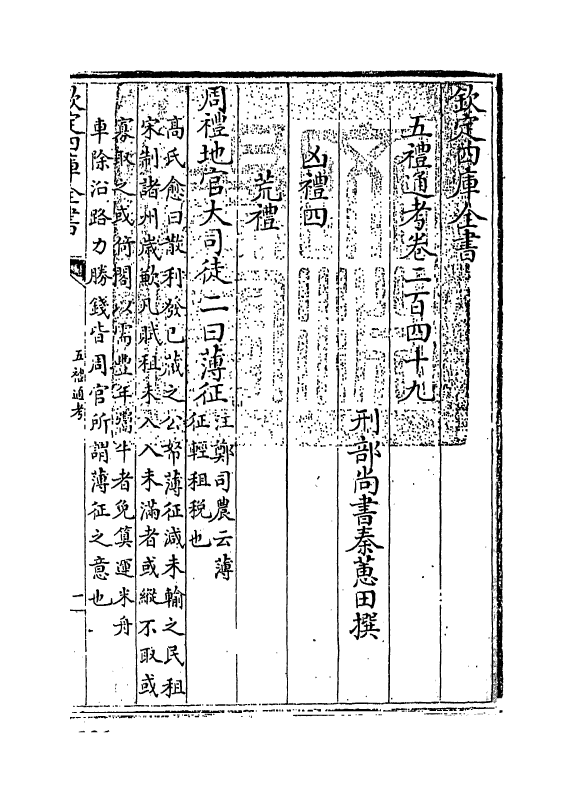 欽定四庫全書
五禮通考卷二百四十九
刑部尚書秦蕙田撰
凶禮四
荒禮
周禮地官大司徒二曰薄征注鄭司農云薄
征輕租税也
高氏愈曰散利發已藏之公帑薄征減未輸之民租
宋制諸州歲歉凡賦租未入入未滿者或縱不取或
寡取之或倚閣以須豐年鬻牛者免算運米舟
車除沿路力勝錢皆周官所謂薄征之意也
欽定四庫全書
五禮通考
一